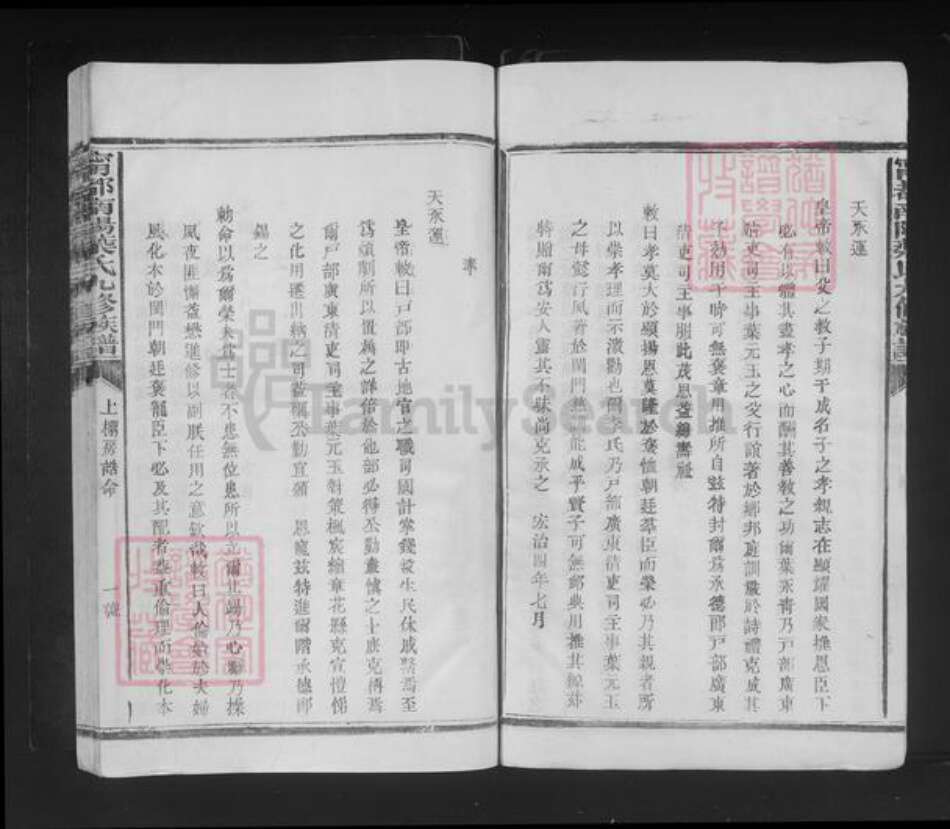 天承運
皇帝敕曰父之教子期于成名子之孝親志在顯耀國家推恩臣下
必有以體其盡孝之心而酬其善教之功爾葉永青乃戶部廣東
清吏司主事葉元玉之父行誼著於鄉邦庭訓嚴於詩禮克成其
子効用于時可無褒章用推所自茲特封爾為承德郎戶部廣東
清吏司主事服此茂恩益綿壽祉
敕曰孝莫大於顯揚恩莫隆於褒恤朝廷羣臣而榮必及其親者所
以崇孝理而示激勸也爾李氏乃戶部廣東清吏司主事葉元玉
之母懿行夙著於閨門慈
能成乎賢子可無卹典用推其線
特贈爾為安人靈其不昧尚克承之 宏治四年七月
奉
天承運
皇帝敕曰戶部即古地官之職司國計寒錢
生民休戚繫焉至
為煩劇所以置屬之詳倍於他部必得
勤盡慎之士庶克偁焉
爾戶部廣東清吏司主事葉元玉對策楓宸綰章花縣克宣愷悌
之化用遷出納之司益稱
勤宜頒 恩寵茲特進爾階承德郎
錫之
勅命以為爾榮夫為士者不患無位患所以立爾其
乃心
乃操
夙夜匪懈益懋進修以副朕任用之意欽哉敕曰人倫始於夫婦
風化本於閨門朝廷褒寵臣下必及其配者
重倫理而
化本
寧都南陽葉氏九修族譜
上
房誥命
一
FamilySearch